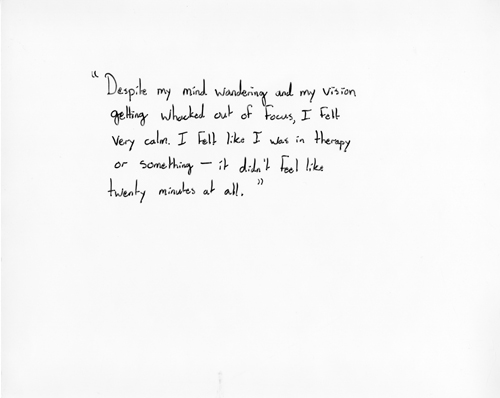 “Despite my mind wandering and my vision
getting whacked out of focus, I felt
very calm. I felt like I was in therapy
or something — it didn't feel like
twenty minutes at all.”